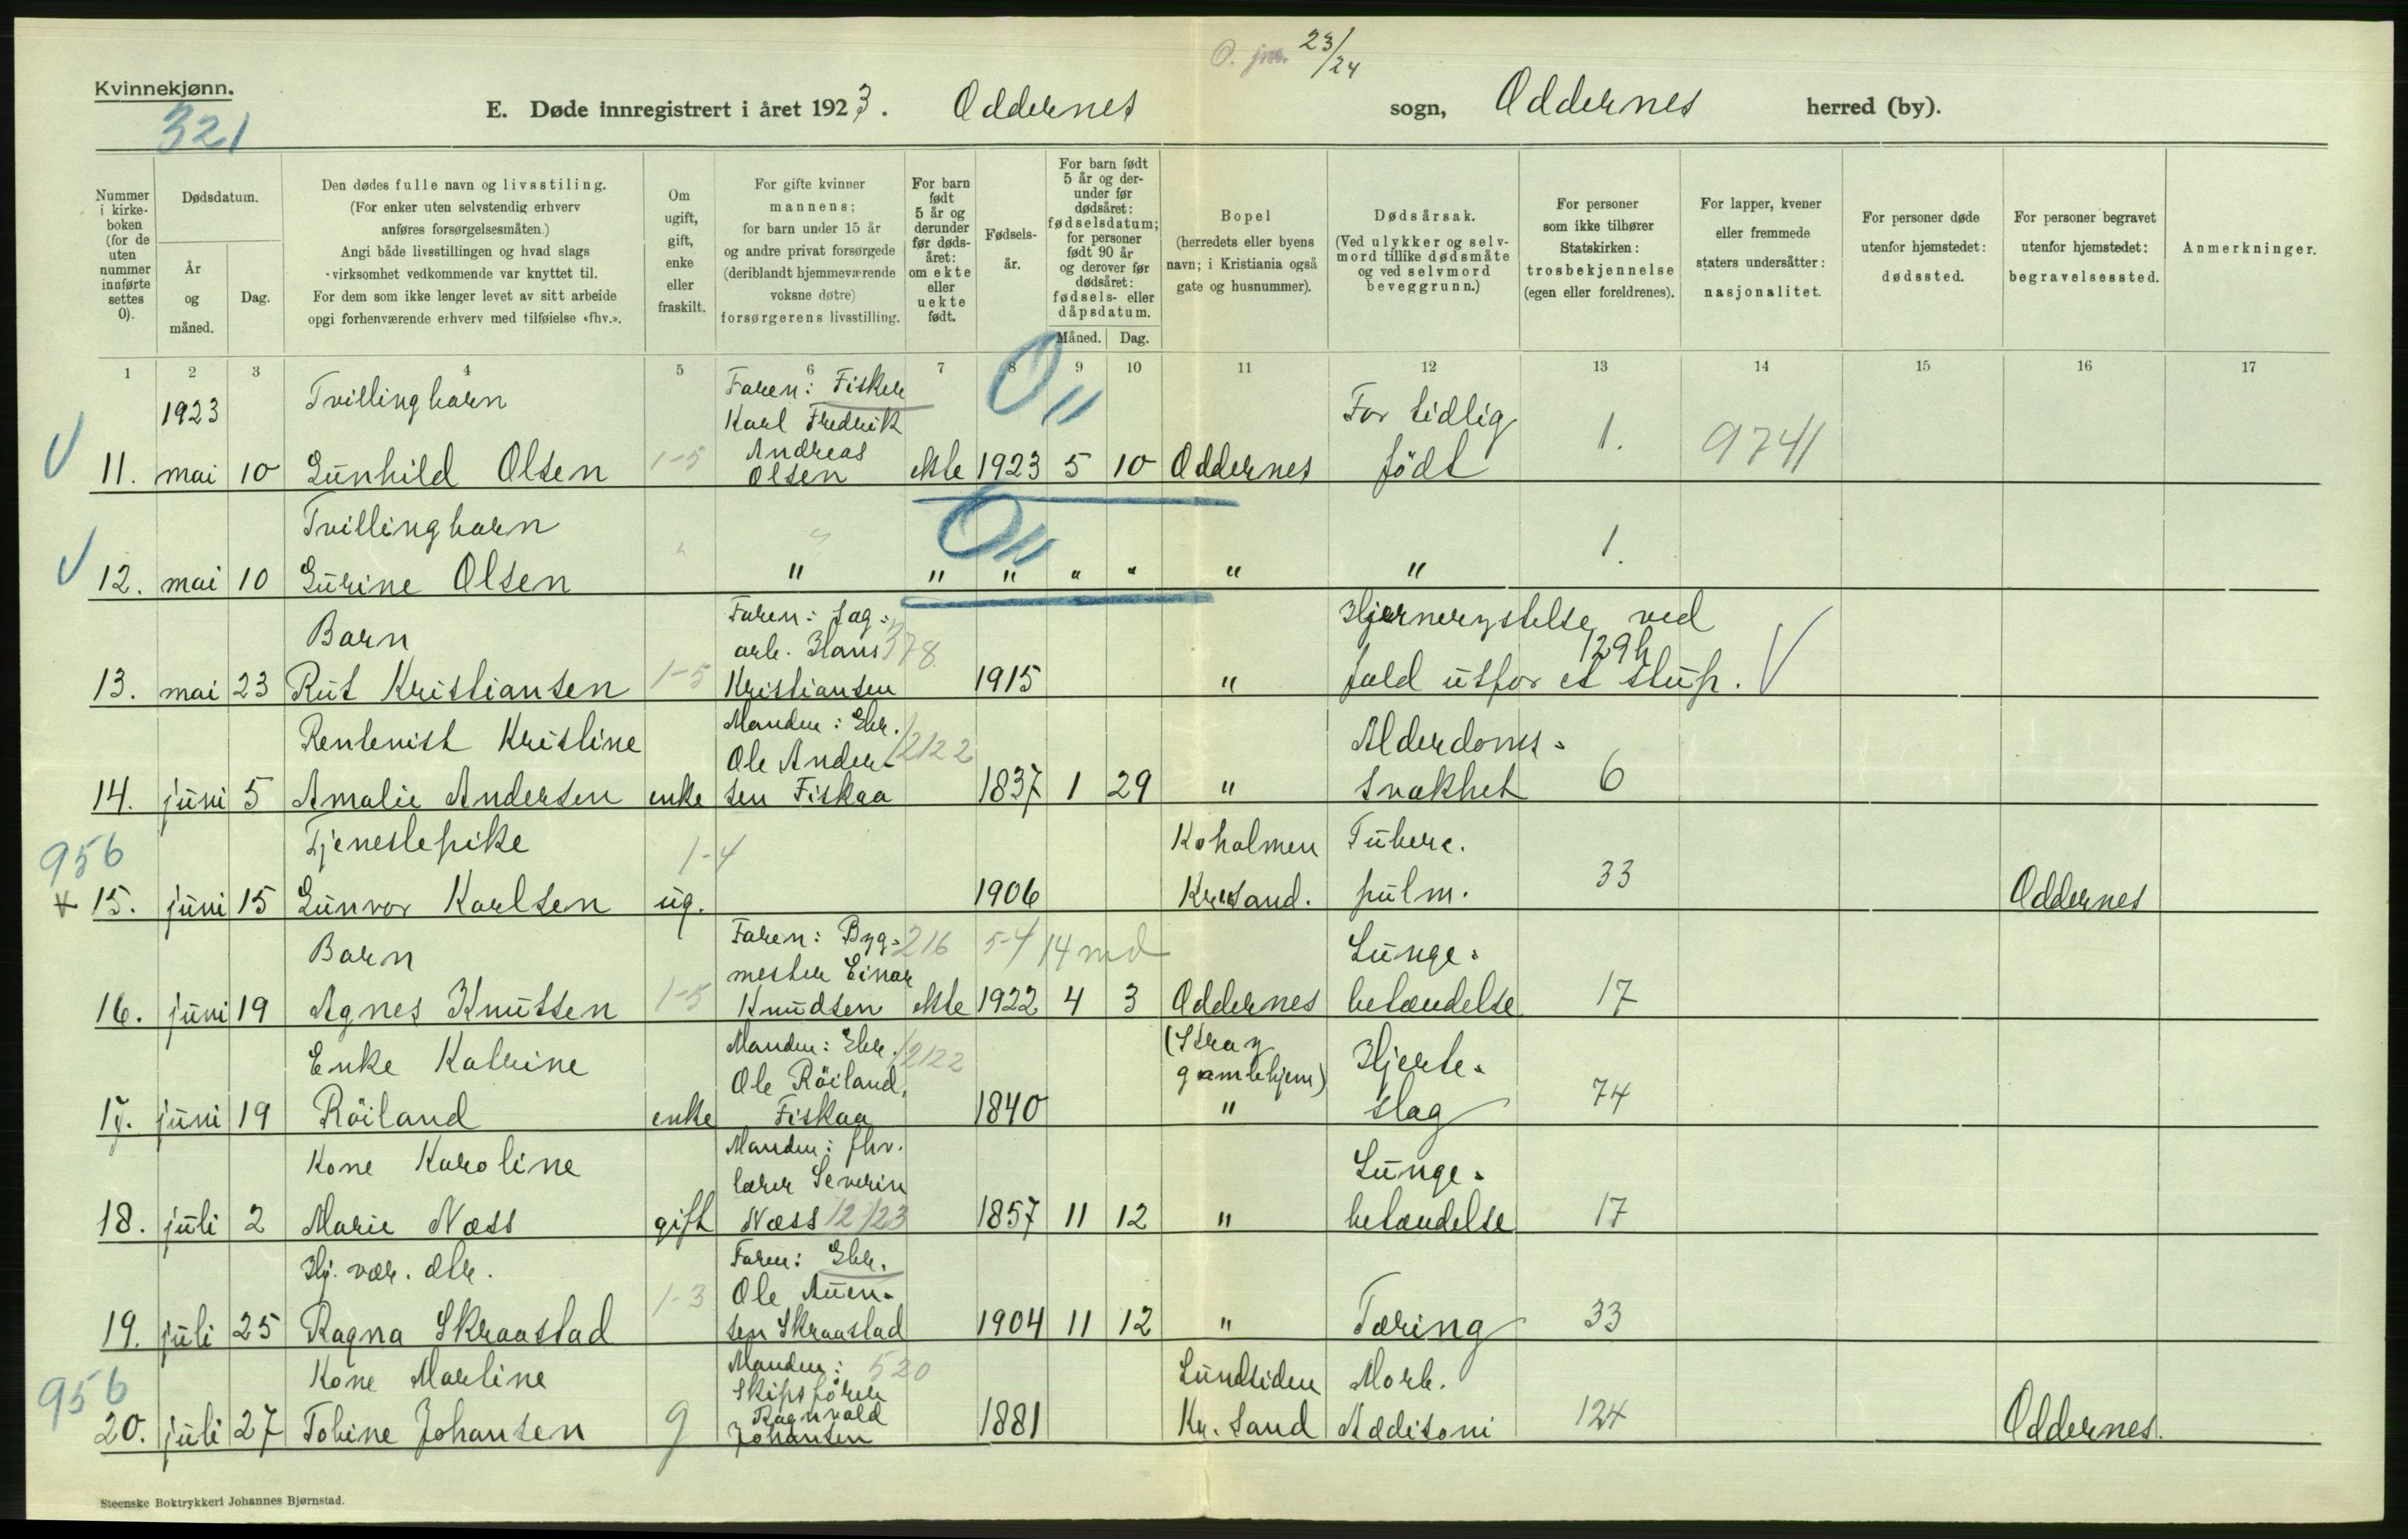 O. jnr. 23/24
Kvinnekjønn.
321
E. Døde innregistrert i året 1923. Oddernes sogn, Oddernes herred (by).
Nummer i kirke-boken (for de uten nummer innførte settes 0).
Dødsdatum.
År og måned.
Dag.
Den dødes fulle navn og livsstiling.
(For enker uten selvstendig erhverv
anføres forsørgelsesmåten.)
Angi både livsstillingen og hvad slags
virksomhet vedkommende var knyttet til.
For dem som ikke lenger levet av sitt arbeide
opgi forhenværende erhverv med tilføielse «fhv.».
Om ugift, gift, enke eller fraskilt.
For gifte kvinner
mannens;
for barn under 15 år
og andre privat forsørgede
(deriblandt hjemmeværende
voksne døtre)
forsørgerens livsstilling.
For barn født 5 år og derunder før døds-året: om ekte eller uekte født.
Fødsels-år.
For barn født 5 år og der-under før dødsåret: fødselsdatum; for personer født 90 år og derover før dødsåret: fødsels- eller dåpsdatum.
Måned. Dag.
Bopel
(herredets eller byens
navn; i Kristiania også
gate og husnummer).
Dødsårsak.
(Ved ulykker og selv-
mord tillike dødsmåte
og ved selvmord
beveggrunn.)
For personer
som ikke tilhører
Statskirken:
trosbekjennelse
(egen eller foreldrenes).
For lapper, kvener
eller fremmede
staters undersåtter:
nasjonalitet.
For personer døde
utenfor hjemstedet:
dødssted.
For personer begravet
utenfor hjemstedet:
begravelsessted.
Anmerkninger.
1 2 3 4 5 6 7 8 9 10 11 12 13 14 15 16 17
1923 Tvillingbarn Faren: Fisker
Karl Fredrik For tidlig
11. mai 10 Gunhild Olsen 1-5 Andreas Olsen ekte 1923 5 10 Oddernes født 1. 9741
Tvillingbarn
12. mai 10 Gurine Olsen " " " " " " " " 1.
Barn Faren: Sag= Hjernerystelse ved
arb. Hans 378 129h
13. mai 23 Rut Kristiansen 1-5 Kristiansen 1915 " fald utfor et stup. V
Rentenist Kristine Manden: Gbr. Alderdoms=
Ole Ander- 12122
14. juni 5 Amalie Andersen enke sen Fiskaa 1837 1 29 " svakhet 6
956 Tjenestepike 1-4 Koholmen Tuberc.
15. juni 15 Gunvor Karlsen ug. 1906 Krsand. pulm. 33 Oddernes
Barn Faren: Byg= 216 5-4 14 md Lunge=
mester Einar
16. juni 19 Agnes Knutsen 1-5 Knudsen ekte 1922 4 3 Oddernes betændelse 17
Enke Katrine Manden: Gbr. 12122 (Stray
Ole Röiland, gamlehjem) Hjerte=
17. juni 19 Röiland enke Fiskaa 1840 " slag 74
Kone Karoline Manden: fhv.
lærer Severin Lunge=
18. juli 2 Marie Næss gift Næss 12123 1857 11 12 " betændelse 17
Hj. vær. dtr. Faren: Gbr.
Ole Auen=
19. juli 25 Ragna Skraastad 1-3 sen Skraastad 1904 11 12 " Tæring 33
956 Kone Martine Manden: 520 Lundsiden Morb.
Skipsfører
20. juli 27 Tobine Johansen g Ragnvald Johansen 1881 Kr. Sand Addisoni 124 Oddernes.
Steenske Boktrykkeri Johannes Bjørnstad.